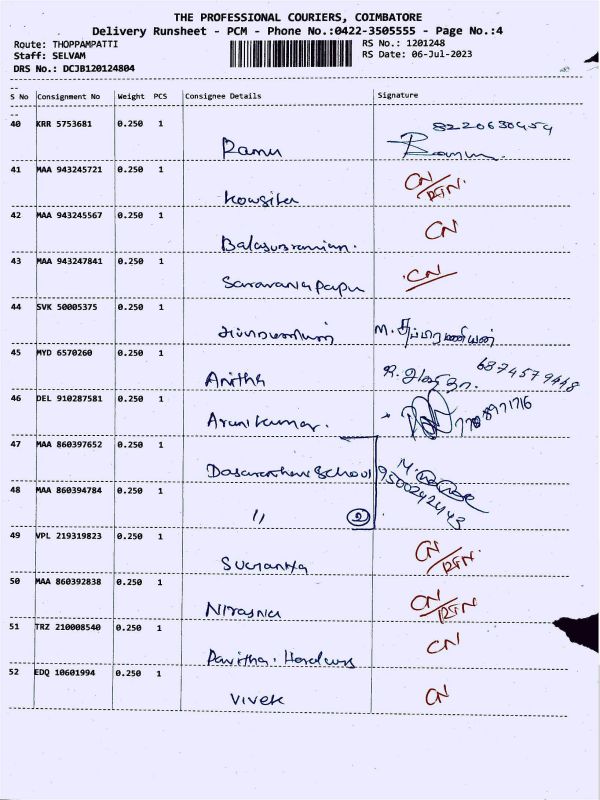 THE PROFESSIONAL COURIERS, COIMBATORE
Delivery Runsheet - PCM - Phone No.:0422-3505555 - Page No.:4
Route: THOPPAMPATTI RS No.: 1201248
Staff: SELVAM RS Date: 06-Jul-2023
DRS No.: DCJB120124804
S No Consignment No Weight PCS Consignee Details Signature
40 KRR 5753681 0.250 1 8220630454
Ramu
41 MAA 943245721 0.250 1 CN/RTN.
Kowsika
42 MAA 943245567 0.250 1 CN
Balasubramian.
43 MAA 943247841 0.250 1 CN
Saravana papu
44 SVK 50005375 0.250 1
M. சுப்பிரமணியன்
45 MYD 6570260 0.250 1 6874579448
Anitha
46 DEL 910287581 0.250 1
Arunkumar. 7708971716
47 MAA 860397652 0.250 1
School 9500242443
48 MAA 860394784 0.250 1
" 2
49 VPL 219319823 0.250 1 CN/RTN.
Sucrantha
50 MAA 860392838 0.250 1 CN/RTN
51 TRZ 210008540 0.250 1 CN
Pavitha.
52 EDQ 10601994 0.250 1 CN
Vivek